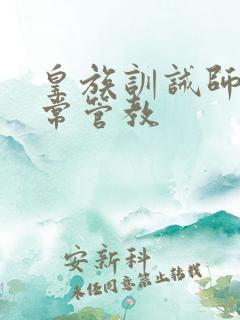 皇族訓誡師
常管教
安新科
未经同意禁止转载